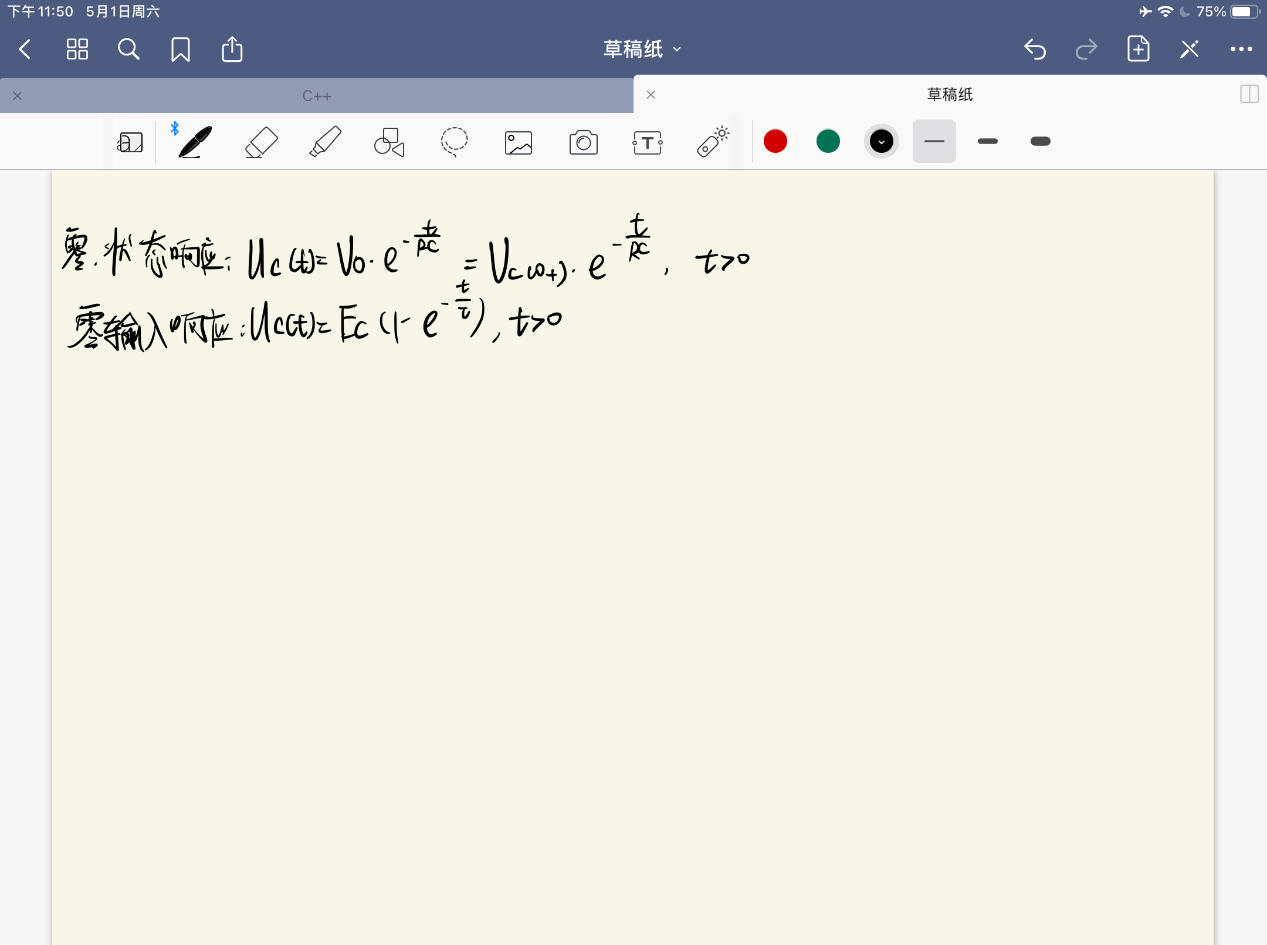 下午11:50 5月1日周六
75%
草稿纸
C++
草稿纸
T
零.状态响应: Uc(t)= V0·e^-t/RC = Uc(0+)·e^-t/RC, t>0
零输入响应: Uc(t)= Ec(1-e^-t/τ), t>0